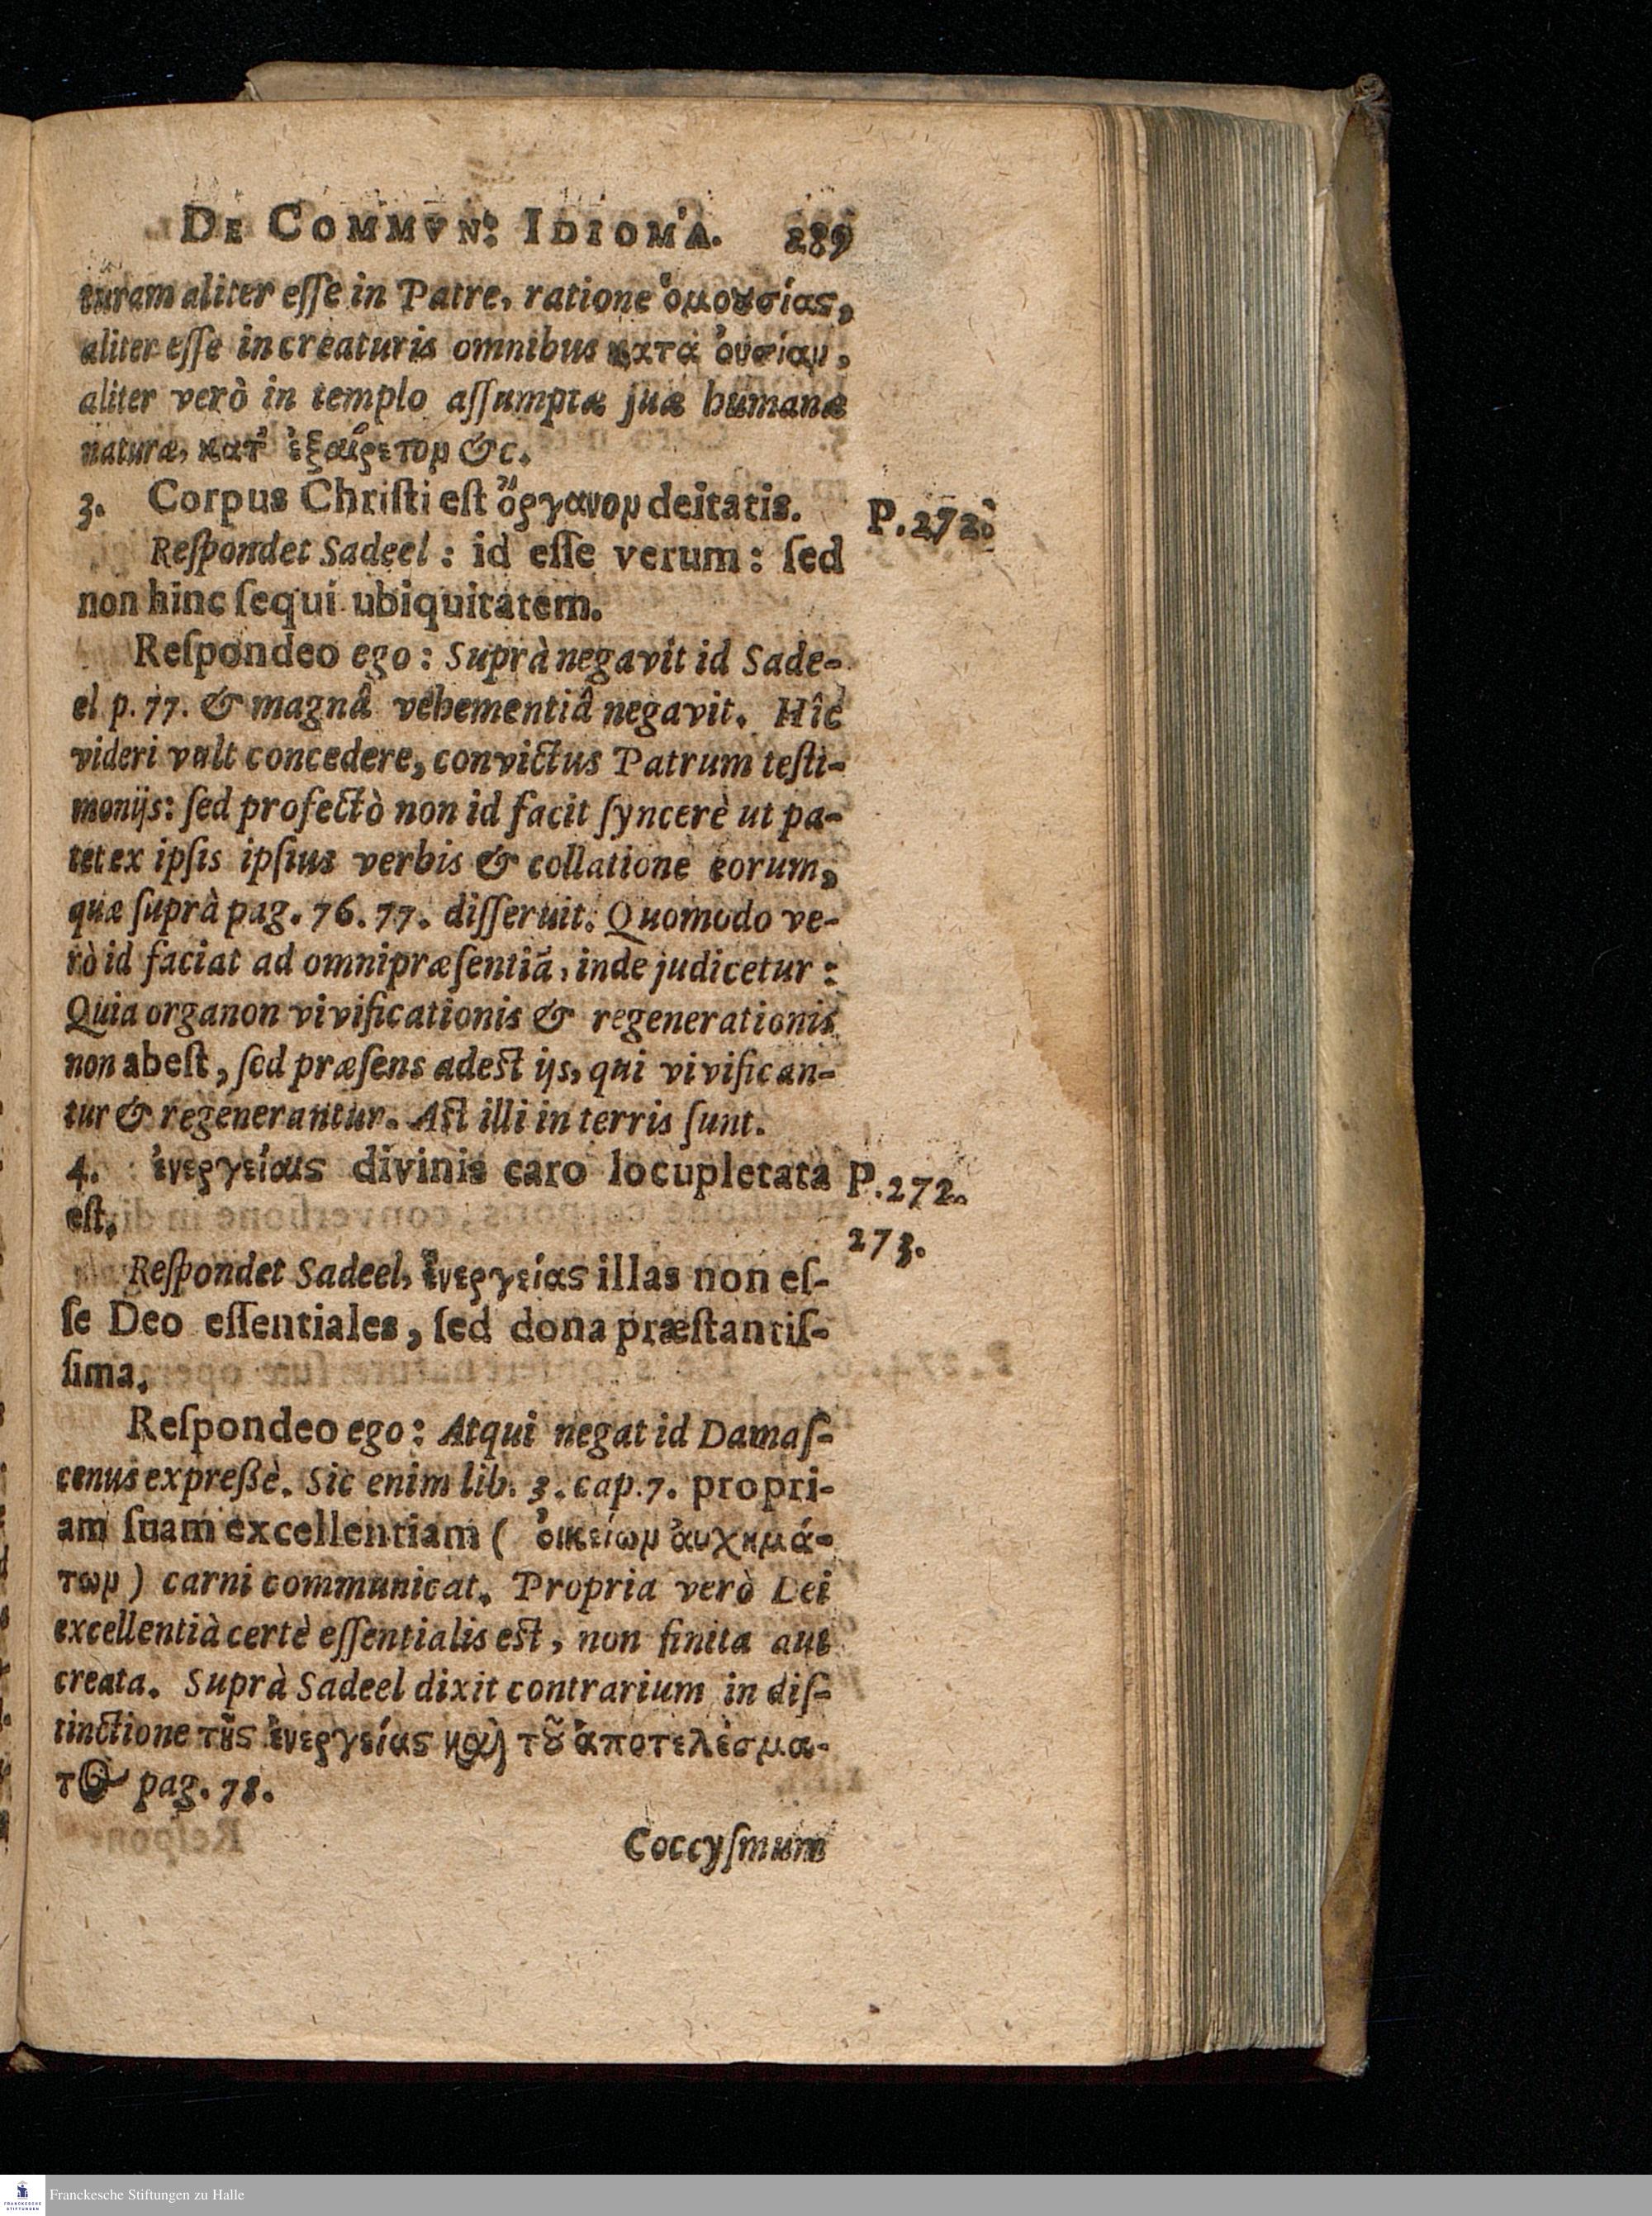 DE COMMVN. IDIOMA. 289
turam aliter eſſe in Patre, ratione ὁμουσίας,
aliter eſſe in creaturis omnibus κατὰ ὀυσίαν,
aliter verò in templo aſſumptæ ſuæ humanæ
naturæ, κατ' ἐξαίρετον &c.
3. Corpus Chriſti eſt ὄργανον deitatis. P. 272.
Reſpondet Sadeel: id eſſe verum: ſed
non hinc ſequi ubiquitatem.
Reſpondeo ego: Suprà negavit id Sade-
el p. 77. & magnâ vehementiâ negavit. Hîc
videri vult concedere, convictus Patrum teſti-
monijs: ſed profectò non id facit ſyncerè ut pa-
tet ex ipſis ipſius verbis & collatione eorum,
quæ ſuprà pag. 76. 77. diſſeruit. Quomodo ve-
rò id faciat ad omnipræſentiã, inde judicetur:
Quia organon vivificationis & regenerationis
non abeſt, ſed præſens adeſt ijs, qui vivifican-
tur & regenerantur. Aſt illi in terris ſunt.
4. ἐνεργείαις divinis caro locupletata P. 272.
eſt. 273.
Reſpondet Sadeel, ἐνεργείας illas non eſ-
ſe Deo eſſentiales, ſed dona præſtantiſ-
ſima.
Reſpondeo ego: Atqui negat id Damaſ-
cenus expreßè. Sic enim lib. 3. cap. 7. propri-
am ſuam excellentiam ( ὀικείων ἀυχημά-
των ) carni communicat. Propria verò Dei
excellentià certè eſſentialis eſt, non finita aut
creata. Suprà Sadeel dixit contrarium in diſ-
tinctione τῆς ἐνεργείας καὶ τοῦ ἀποτελέσμα-
τος pag. 78.
Coccyſmum
Franckesche Stiftungen zu Halle